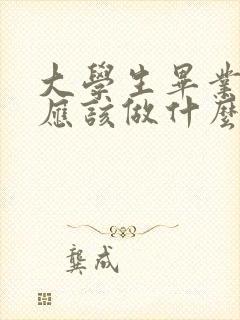 大學生畢業
應該做什麼
龔成